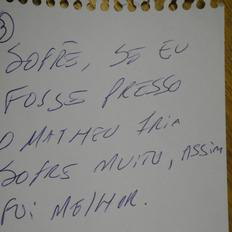 3
SOFRÊ, SE EU
FOSSE PRESSO
O MATHEU IRIA
SOFRE MUITO, ASSIM
FOI MELHOR.